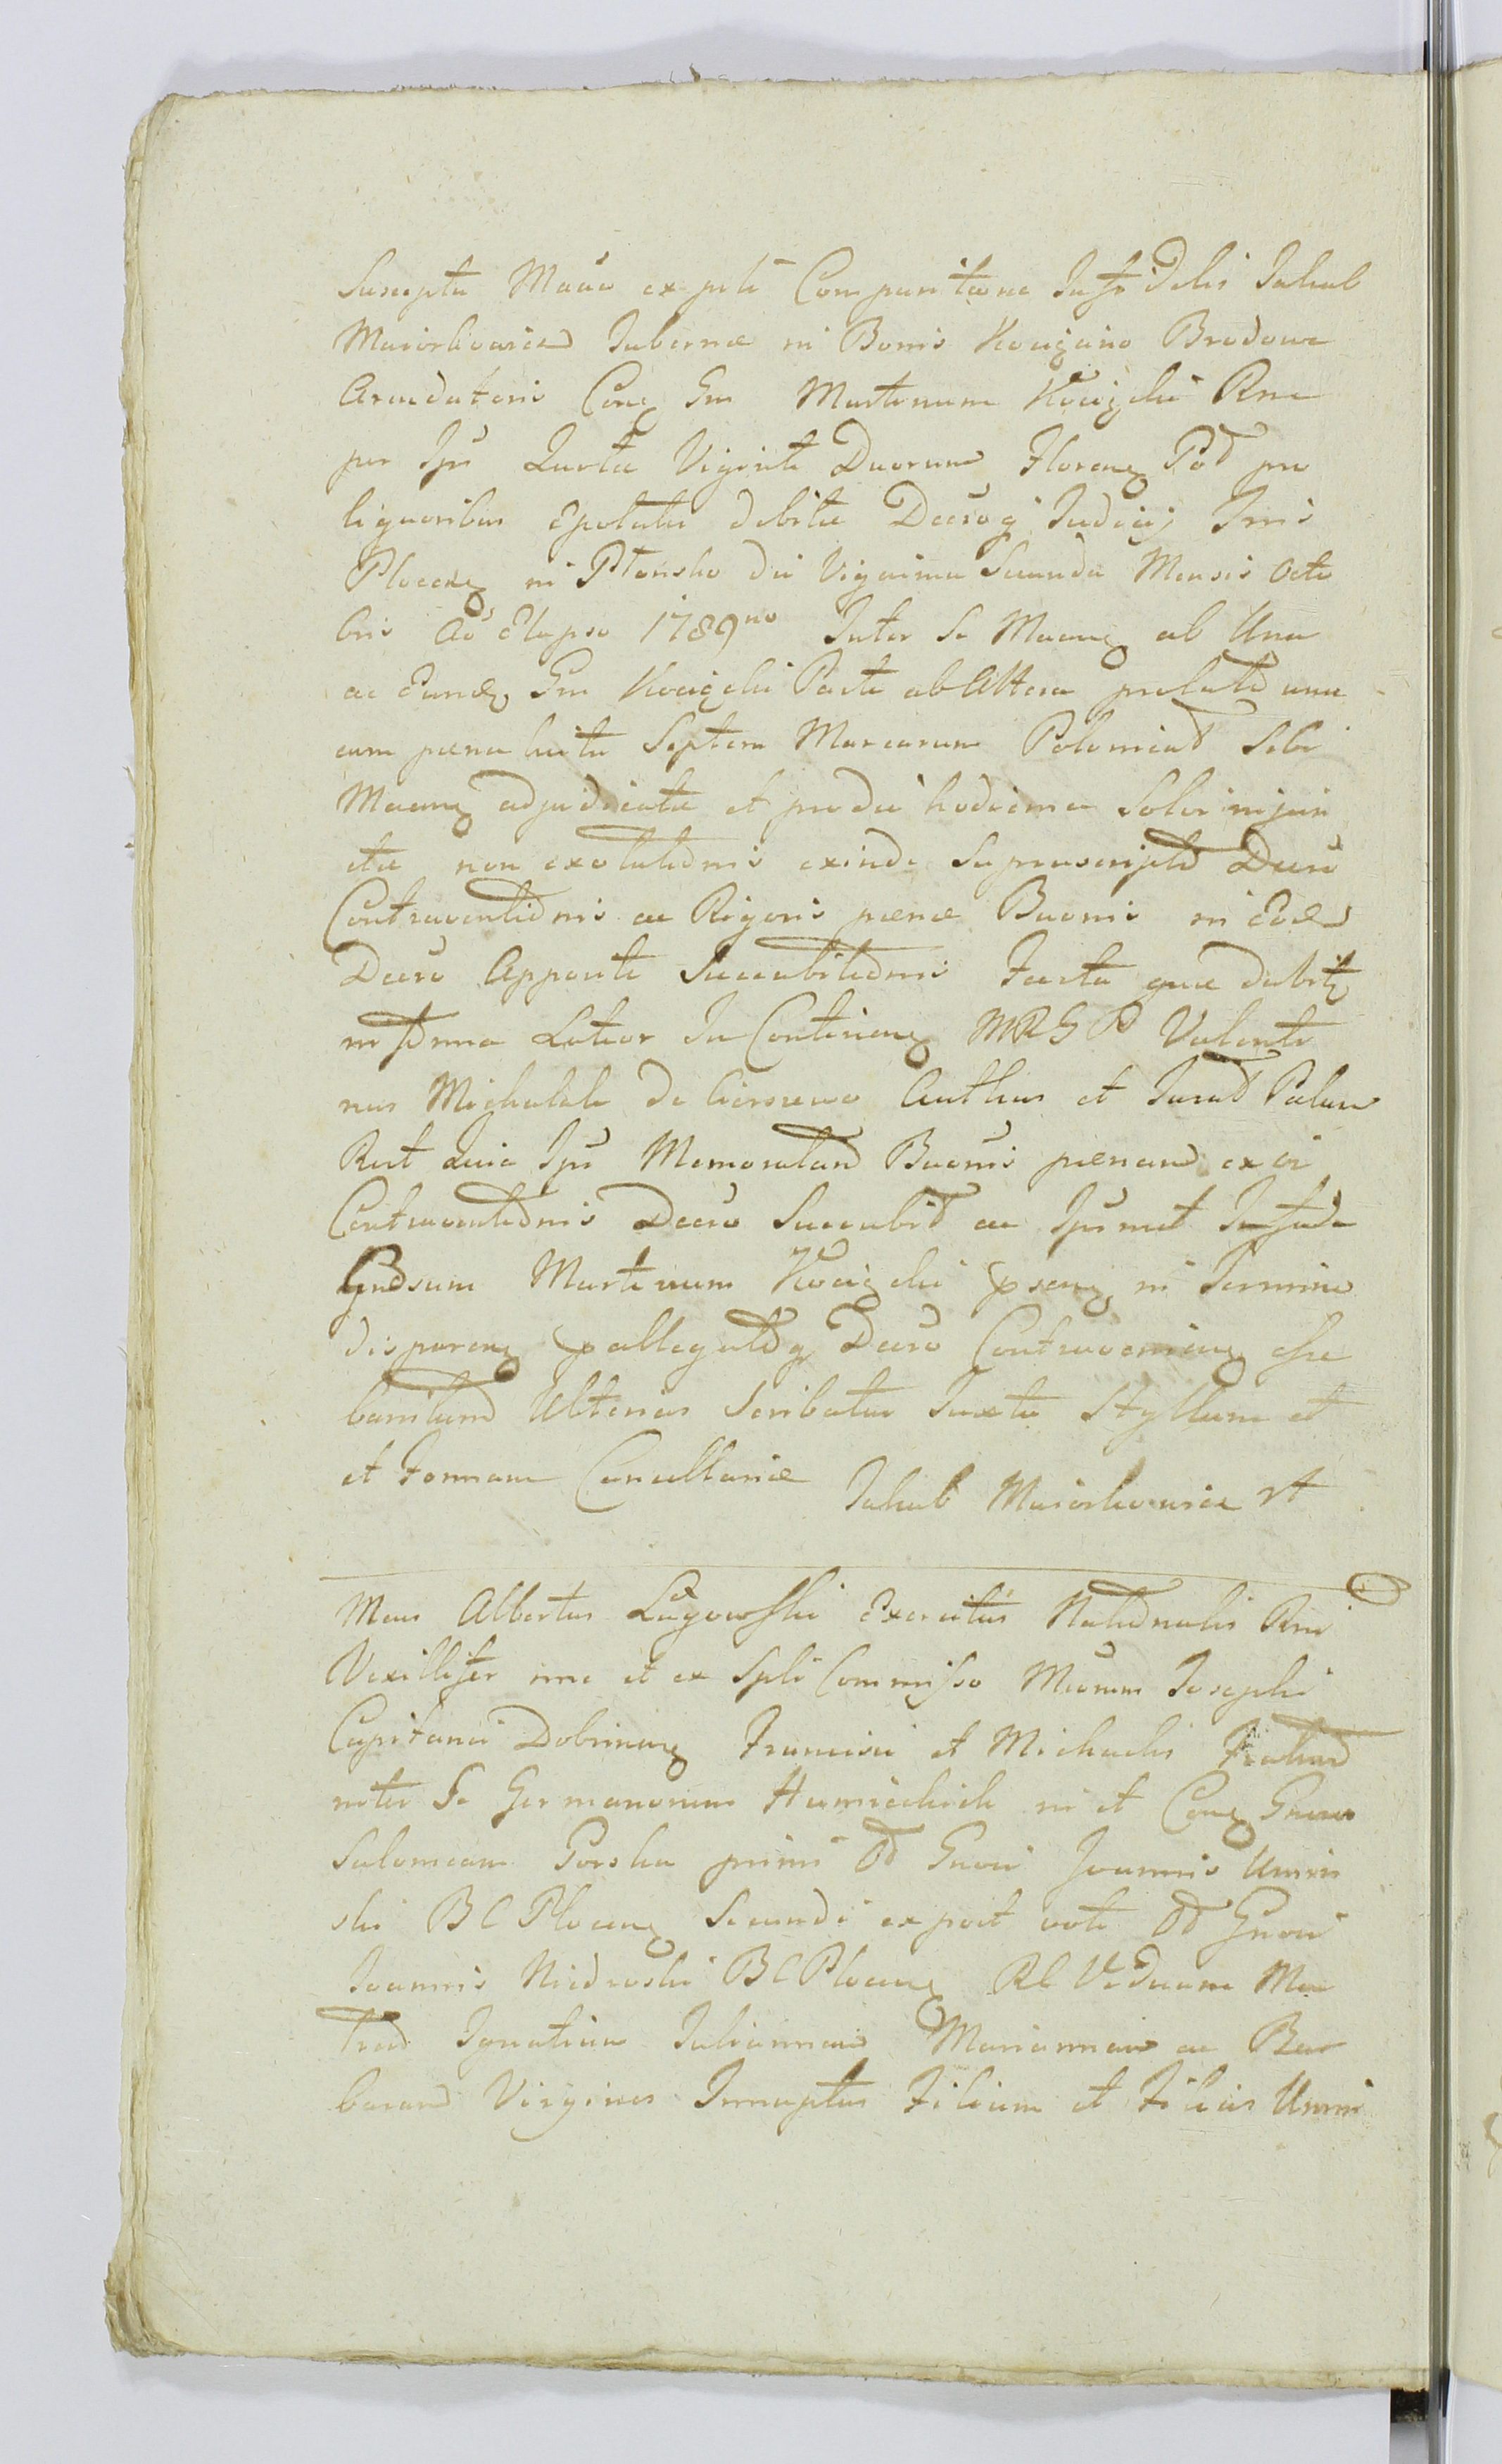 Suscepta Manu ex psti Comparitione Infidelis Jakub
Maiorkowicz Tabernæ in Bonis Kocięcino Brodowe
Arendatoris Cong Gm Martinum Kocięcki Rne
per Ipm Quota Viginti Duorum Floreng Pol pro
liquoribus Epotatis debita Decrog Judicij Trris
Plocen in Płonsko die Vigesima Secunda Mensis Octo
bris Ao Elapso 1789no Inter Se Maeng ab Una
ac Eund Gm Kocięcki Parte ab Altera prolato una
cum pæna luita Septem Marcarum Polonicat Sibi
Maeng adjudicata et pro die hodierna Solvi injun
cta non exolutionis exinde Suprascripto Decro
Contraventionis ac Rigoris pænæ Bannis in Eod
Decro Apposite Succubitionis Facta quæ debit
in forma Lator In Continen MRG P Valenti
nus Michalski de Cierszewo Authus et Jurat Palam
Rect Quia Ipm Memoratam Bannis pænam ex vi
Contraventionis Decro Succubit ac Ipsmet Infide
Gnosum Martinum Kocięcki pseng in Termino
disparen pallegatoq Decro Contravenieng esse
bannitum Ulterius Scribatur Juxta Styllum et
et Formam Cancellariæ Jakub Maiorkowicz rt
Mcus Albertus Ługowski Exercitus Nationalis Rni
Vexillifer nne et ex Spli Commisso Mcorum Josephi
Capitanei Dobrineng Francisci et Michaelis Fratrum
inter Se Germanorum Humięckich in et Cong Gnm
Salomeam Gorska primi Od Gnosi Joannis Umin
ski BC Ploceng Secundi ex post voti Od Gnosi
Joannis Niedroski BC Ploceng Rl Viduam Ma
trem Ignatium Juliannam Mariannam ac Bar
baram Virgines Innuptas Filium et Filias Umin